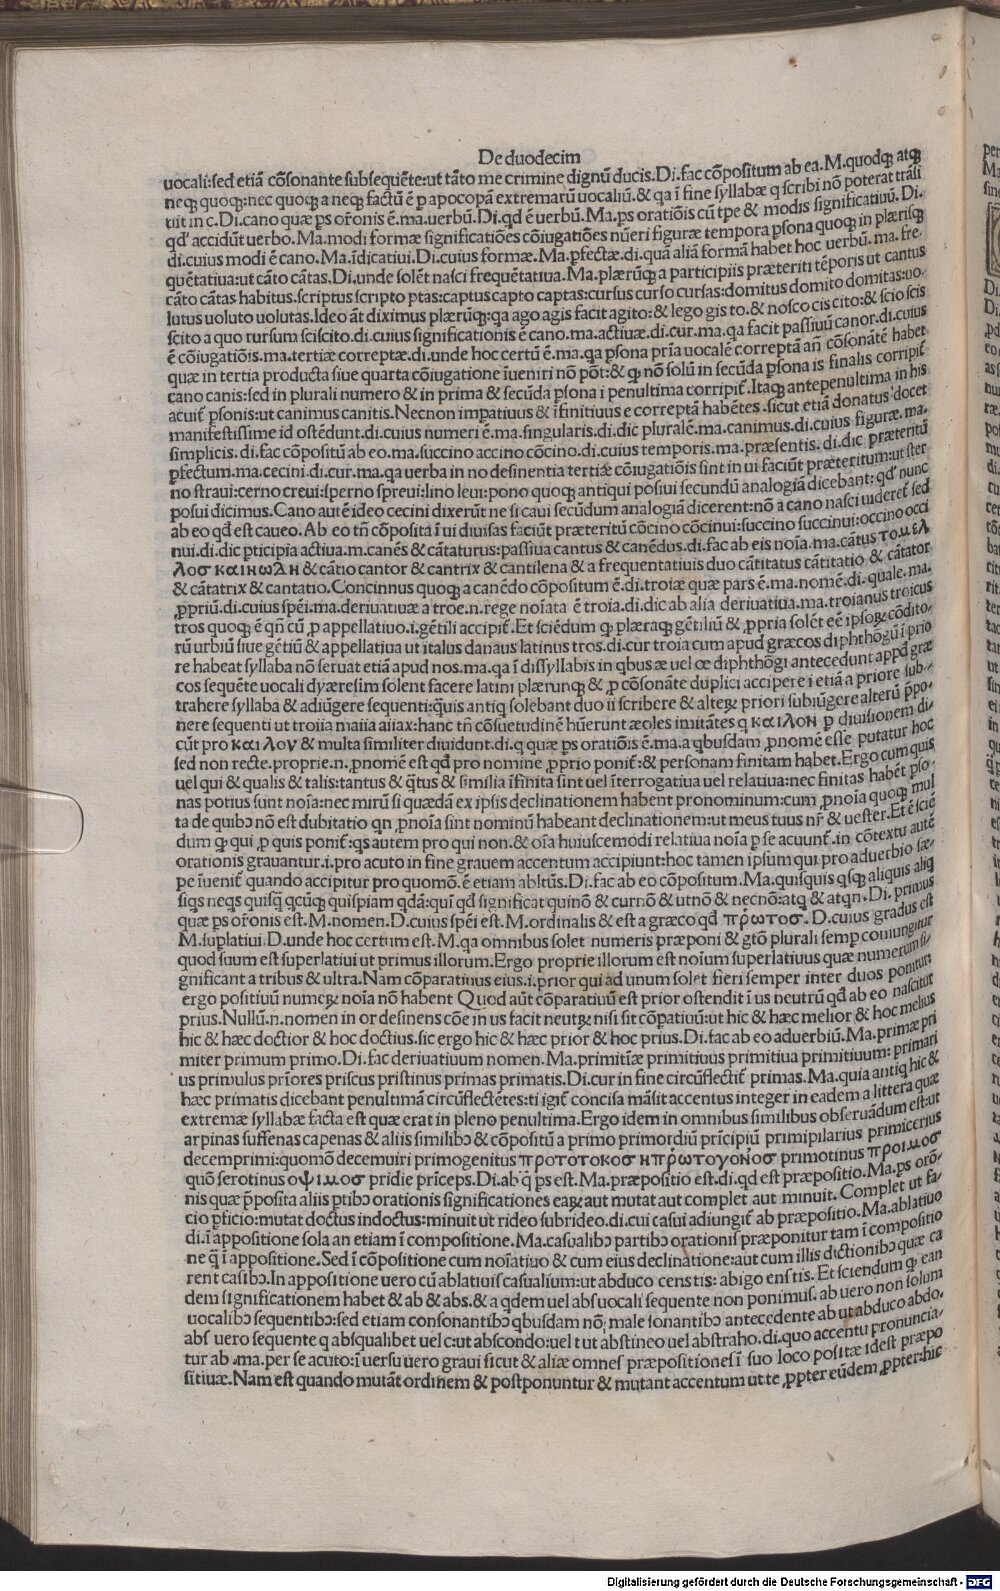 De duodecim
uocali:sed etiã cõsonante subsequẽte:ut tãto me crimine dignũ ducis.Di.fac cõpositum ab ea.M.quodqꝫ atqꝫ
neqꝫ quoqꝫ:nec quoqꝫ a neqꝫ factũ ẽ p apocopã extremarũ uocaliũ.& qa ĩ fine syllabæ q scribi nõ poterat trãsi
tiit in c.Di.cano quæ ps or̃onis ẽ.ma.uerbũ.Di.qd ẽ uerbũ.Ma.ps oratiõis cũ tpe & modis significatiuũ.Di.
qd' accidũt uerbo.Ma.modi formæ significatiões cõiugatiões nũeri figuræ tempora psona quoqꝫ in plærisqꝫ
di.cuius modi ẽ cano.Ma.ĩdicatiui.Di.cuius formæ.Ma.pfectæ.di.quã aliã formã habet hoc uerbũ.ma.fre-
quẽtatiua:ut cãto cãtas.Di.unde solẽt nasci frequẽtatiua.Ma.plærũqꝫ a participiis præteriti tẽporis ut cantus
cãto cãtas habitus.scriptus scripto ptas:captus capto captas:cursus curso cursas:domitus domito domitas:uo-
lutus uoluto uolutas.Ideo ãt diximus plærũqꝫ:qa ago agis facit agito:& lego gis to.& nosco cis cito:& scio scis
scito a quo rursum sciscito.di.cuius significationis ẽ cano.ma.actiuæ.di.cur.ma.qa facit passiuũ canor.di.cuius
ẽ cõiugatiõis.ma.tertiæ correptæ.di.unde hoc certũ ẽ.ma.qa psona prĩa uocalẽ correptã añ cõsonãtẽ habet
quæ in tertia producta siue quarta cõiugatione ĩueniri nõ põt:& qꝫ nõ solũ in secũda psona is finalis corripit̃
cano canis:sed in plurali numero & in prima & secũda psona i penultima corripit̃.Itaqꝫ antepenultima in his
acuit̃ psonis:ut canimus canitis.Necnon impatiuus & ĩfinitiuus e correptã habẽtes.sicut etiã donatus docet
manifestissime id ostẽdunt.di.cuius numeri ẽ.ma.singularis.di.dic pluralẽ.ma.canimus.di.cuius figuræ.ma.
simplicis.di.fac cõpositũ ab eo.ma.succino accino cõcino.di.cuius temporis.ma.præsentis.di.dic præteritũ
pfectum.ma.cecini.di.cur.ma.qa uerba in no desinentia tertiæ cõiugatiõis sint in ui faciũt præteritum:ut ster
no straui:cerno creui:sperno spreui:lino leui:pono quoqꝫ antiqui posiui secundũ analogiã dicebant:qd' nunc
posui dicimus.Cano autẽ ideo cecini dixerũt ne si caui secũdum analogiã dicerent:nõ a cano nasci uideret̃ sed
ab eo qd est caueo.Ab eo tñ cõposita ĩ ui diuisas faciũt præteritũ cõcino cõcinui:succino succinui:occino occi
nui.di.dic pticipia actiua.m.canẽs & cãtaturus:passiua cantus & canẽdus.di.fac ab eis noĩa.ma.cãtus τομελ
λοσ καιηωΔη & cãtio cantor & cantrix & cantilena & a frequentatiuis duo cãtitatus cãtitatio & cãtator
& cãtatrix & cantatio.Concinnus quoqꝫ a canẽdo cõpositum ẽ.di.troiæ quæ pars ẽ.ma.nomẽ.di.quale.ma.
ꝓpriũ.di.cuius spẽi.ma.deriuatiuæ a troe.n.rege noĩata ẽ troia.di.dic ab alia deriuatiua.ma.troianus troicus
tros quoqꝫ ẽ qñ cũ ꝓ appellatiuo.i.gẽtili accipit̃.Et sciẽdum qꝫ plæraqꝫ gẽtiliũ & ꝓpria solẽt eẽ ipsoꝝ cõdito-
rũ urbiũ siue gẽtiũ & appellatiua ut italus danaus latinus tros.di.cur troia cum apud græcos diphthõgũ ĩ prio
re habeat syllaba nõ seruat etiã apud nos.ma.qa ĩ dissyllabis in qbus æ uel œ diphthõgi antecedunt appd' græ
cos sequẽte uocali dyæresim solent facere latini plærunqꝫ & ꝓ cõsonãte duplici accipere i etiã a priore sub-
trahere syllaba & adiũgere sequenti:quis antiq solebant duo ii scribere & alteꝝ priori subiũgere alterũ p̃po-
nere sequenti ut troiia maiia aiiax:hanc tñ cõsuetudinẽ hũerunt æoles imitãtes q καιλον p diuisionem di-
cũt pro καιλον & multa similiter diuidunt.di.q quæ ps oratiõis ẽ.ma.a qbusdam ꝓnomẽ esse putatur hoc
sed non recte.proprie.n.ꝓnomẽ est qd pro nomine ꝓprio ponit̃:& personam finitam habet.Ergo cum quis
uel qui & qualis & talis:tantus & qtus & similia ĩfinita sint uel ĩterrogatiua uel relatiua:nec finitas habẽt pso-
nas potius sunt noĩa:nec mirũ si quædã ex ipsis declinationem habent pronominum:cum ꝓnoĩa quoqꝫ mul
ta de quibꝯ nõ est dubitatio qn ꝓnoĩa sint nominũ habeant declinationem:ut meus tuus nr̃ & uester.Et ẽ sciẽ
dum qꝫ qui ꝓ quis ponit̃:qs autem pro qui non.& oĩa huiuscemodi relatiua noĩa p se acuunt̃.in cõtextu autẽ
orationis grauantur.i.pro acuto in fine grauem accentum accipiunt:hoc tamen ipsum qui pro aduerbio sæ-
pe ĩuenit̃ quando accipitur pro quomõ.ẽ etiam abltũs.Di.fac ab eo cõpositum.Ma.quisquis qsqꝫ aliquis aliq
siqs neqs quisq qcũqꝫ quispiam qdã:qui qd' significat quinõ & curnõ & utnõ & necnõ:atqꝫ & atqn.Di.primus
quæ ps or̃onis est.M.nomen.D.cuius spẽi est.M.ordinalis & est a græco qd πρώτοσ.D.cuius gradus est
M.suplatiui.D.unde hoc certum est.M.qa omnibus solet numeris præponi & gtõ plurali semp coniungitur
quod suum est superlatiui ut primus illorum.Ergo proprie illorum est noĩum superlatiuus quæ numerum si-
gnificant a tribus & ultra.Nam cõparatiuus eius.i.prior qui ad unum solet fieri semper inter duos ponitur.
ergo positiuũ numeꝝ noĩa nõ habent Quod aũt cõparatiuũ est prior ostendit ĩ us neutrũ qd ab eo nascitur
prius.Nullũ.n.nomen in or desinens cõe in us facit neutꝝ nisi sit cõpatiuũ:ut hic & hæc melior & hoc melius
hic & hæc doctior & hoc doctius.sic ergo hic & hæc prior & hoc prius.Di.fac ab eo aduerbiũ.Ma.primæ pri
miter primum primo.Di.fac deriuatiuum nomen.Ma.primitĩæ primitiuus primitiua primitiuum:primari
us primulus prĩores priscus pristinus primas primatis.Di.cur in fine circũflectit̃ primas.Ma.quia antiq hic &
hæc primatis dicebant penultimã circũflectẽtes:ti igit̃ concisa mãsit accentus integer in eadem a littera quæ
extremæ syllabæ facta est quæ erat in pleno penultima.Ergo idem in omnibus similibus obseruãdum est:ut
arpinas suffenas capenas & aliis similibꝯ & cõpositũ a primo primordiũ prĩcipiũ primipilarius primicerius
decemprimi:quomõ decemuiri primogenitus προτοτοκοσ ηπρώτογονοσ primotinus προιμοσ
quõ serotinus οψιμοσ pridie prĩceps.Di.ab q ps est.Ma.præpositio est.di.qd est præpositio.Ma.ps orõ-
nis quæ p̃posita aliis ptibꝯ orationis significationes eaꝝ aut mutat aut complet aut minuit.Complet ut fa-
cio pficio:mutat doctus indoctus:minuit ut rideo subrideo.di.cui casui adiungit̃ ab præpositio.Ma.ablatiuo
di.ĩ appositione sola an etiam ĩ compositione.Ma.casualibꝯ partibꝯ orationis præponitur tam ĩ compositio
ne q ĩ appositione.Sed ĩ cõpositione cum noĩatiuo & cum eius declinatione:aut cum illis dictionibꝯ quæ ca
rent casibꝯ.In appositione uero cũ ablatiuis casualium:ut abduco cens tis: abigo ens tis.Et sciendum qꝫ ean
dem significationem habet & ab & abs.& a qdem uel abs uocali sequente non ponimus.ab uero non solum
uocalibꝯ sequentibꝯ:sed etiam consonantibꝯ qbusdam nõ male sonantibꝯ antecedente ab ut abduco abdo.
abs uero sequente q absqualibet uel c:ut abscondo:uel t ut abstineo uel abstraho.di.quo accentu pronuncia-
tur ab.ma.per se acuto:ĩ uersu uero graui sicut & aliæ omnes præpositiones ĩ suo loco positæ idest præpo
sitiuæ.Nam est quando mutãt ordinem & postponuntur & mutant accentum ut te ꝓpter eũdem ꝓpter:hic
Digitalisierung gefördert durch die Deutsche Forschungsgemeinschaft - DFG